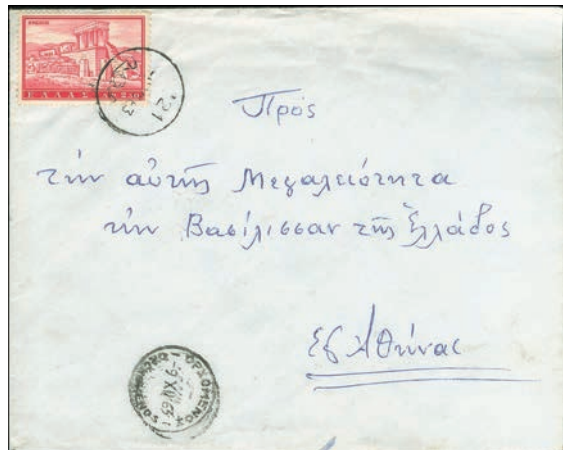 ΕΛΛΑΣ
21
Πρὸς
τὴν αὐτῆς Μεγαλειότητα
τὴν Βασίλισσαν τῆς Ἑλλάδος
Εἰς Ἀθήνας
ΟΡΧΟΜΕΝΟΣ